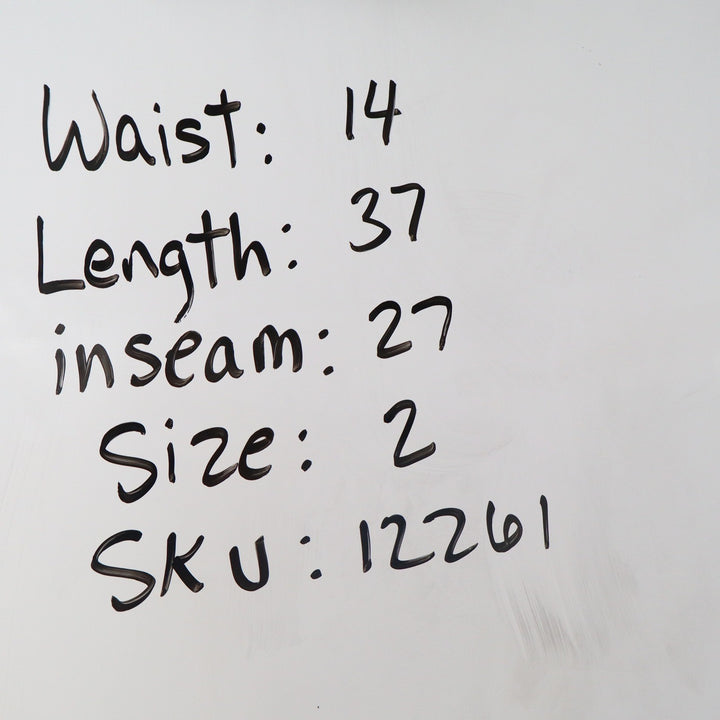 Waist: 14
Length: 37
inseam: 27
Size: 2
SKU: 12261